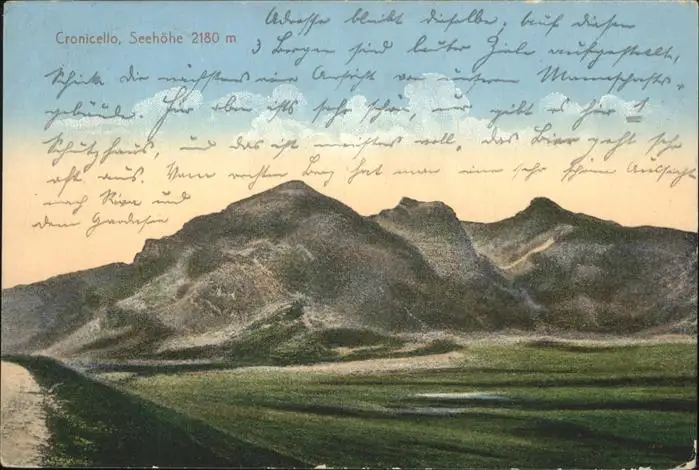 Cronicello, Seehöhe 2180 m
Adresse bleibt dieselbe, auf diesen
3 Bergen sind lauter Ziele aufgestellt,
Schick dir nächstens eine Ansicht von unserem Mannschafts-
gebäude. Hier oben ists sehr schön, nur gibt es hier 1
Schutzhaus, und das ist meistens voll, das Bier geht sehr
oft aus. Vom Berg hat man eine sehr schöne Aussicht
nach Riva und
dem Gardasee